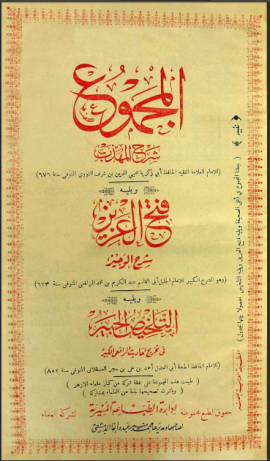 المجموع
شرح المهذب
للامام العلامة الفقيه الحافظ أبى زكريا محيى الدين بن شرف النووى المتوفى سنة ٦٧٦
ويليه
فتح العزيز
شرح الوجيز
وهو الشرح الكبير للامام الجليل أبى القاسم عبد الكريم بن محمد الرافعى المتوفى سنة ٦٢٣
ويليه
التلخيص الحبير
فى تخريج أحاديث الرافعى الكبير
للامام الحافظ الحجة أبى الفضل أحمد بن على بن حجر العسقلانى المتوفى سنة ٨٥٢
طبعت هذه المجموعة على نفقة شركة من كبار علماء الازهر
حقوق الطبع محفوظة
ادارة الطباعة المنيرية
لشركة العلماء